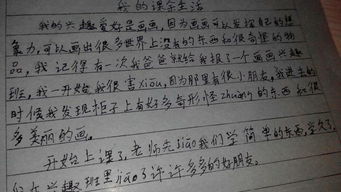 我的课余生活
我的兴趣爱好是画画，因为画画可以发挥自己的想
象力，可以画出很多世界上没有的东西和很奇怪的物
品，我记得有一次我爸爸就给我报了一个画画兴趣
班，我一开始我很害xiou，因为那里有很小朋友，我进去的
时候我发现柜子上有好多奇形怪zhuang的东西和很
多美丽的画。
开始上课了，老师先jiao我们学简单的东西，学久了，
兴趣班里jiao了许许多多的好朋友。